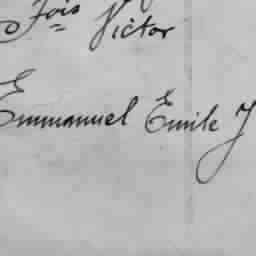 Fois Victor
Emmanuel Emile J